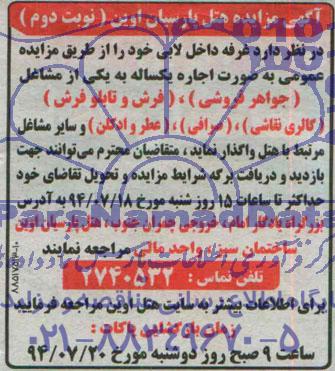 آگهی مزایده هتل پارسیان اوین ( نوبت دوم )
در نظر دارد غرفه داخل لابی خود را از طریق مزایده
عمومی به صورت اجاره یکساله به یکی از مشاغل
( جواهر فروشی ) ، ( فرش و تابلو فرش )
( گالری نقاشی ) ، ( صرافی ) ، ( عطر و ادکلن ) و سایر مشاغل
مرتبط با هتل واگذار نماید ، متقاضیان محترم می‌توانند جهت
بازدید و دریافت برگه شرایط مزایده و تحویل تقاضای خود
حداکثر تا ساعات ۱۵ روز شنبه مورخ ۹۴/۰۷/۱۸ به آدرس
بزرگراه یادگار امام ، خروجی چمران جنوب ، هتل پارسیان اوین
ساختمان سبز، واحد مالی مراجعه نمایند
تلفن تماس : ۲۷۴۰۵۲۲
برای اطلاعات بیشتر به سایت هتل اوین مراجعه فرمایید
زمان بازگشایی پاکات :
ساعت ۹ صبح روز دوشنبه مورخ ۹۴/۰۷/۲۰
۰۲۱-۸۸۳۴۹۶۷۰-۵